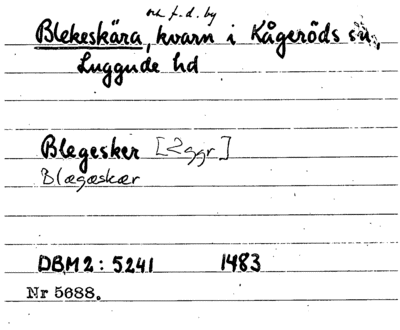 och f.d. by
Blekeskära, kvarn i Kågeröds sn,
Luggude hd
Blegesker [2 ggr]
Blægæskær
DBM 2: 5241 1483
Nr 5688.